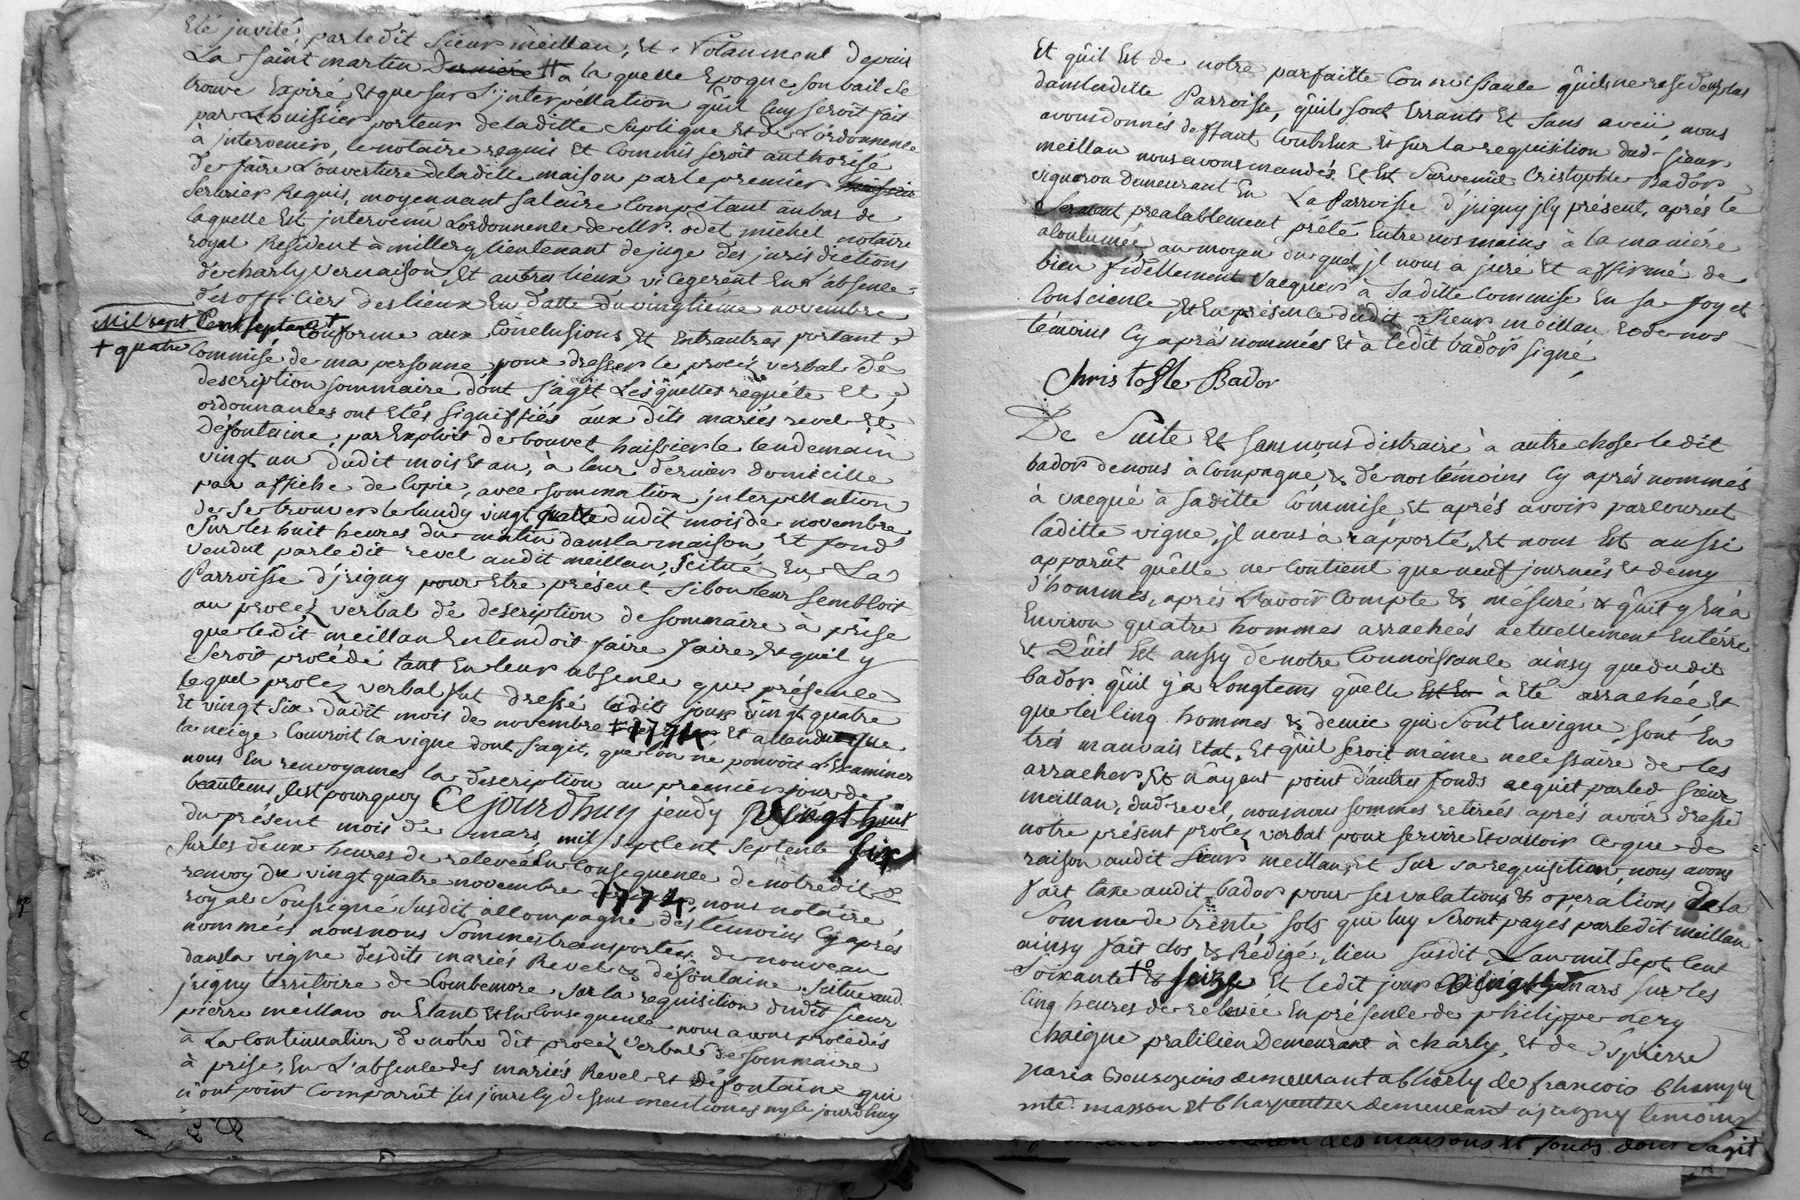 Eté jnvité, par ledit Sieur meillan, Et Notamment depuis
La Saint martin derniere # a la quelle Epoque son bail se
trouve Expiré, Et que sur L'jnterpéllation qu'il luy seroit fait
par L'huissier porteur de laditte Suplique Et de L'ordonnence
à jntervenir, le notaire requis Et Commis seroit authorisé
de faire L'ouverture de laditte maison par le premier
Serurier Requis, moyennant Salaire Compétant au bas de
laquelle Est jntervenu L'ordonnence de Mr. odet michel notaire
royal Resident à millery lieutenant de juge des jurisdictions
de charly vernaison, Et autres lieux vicegerent En L'absence
des officiers des lieux En datte du vingtieme novembre
Mil sept Cent septante +
+ quatre
Conforme aux Conclusions Et Entrautres portant
Commise de ma personne, pour dresser le procéz verbal de
description sommaire dont s'agit Lesquelles requéte Et
ordonnances ont Etés signiffiés aux dits mariés revel Et
défontaine, par Exploit de bouvet huissier le lendemain
vingt un dudit mois Et an, à leur dernier domicille
par affiche de Copie, avec sommation jnterpellation
de se trouver le lundy vingt quatre dudit mois de novembre
Sur les huit heures du matin dans la maison, Et fond
vendut par ledit revel audit meillan, Scitué En La
Parroisse d'jrigny pour Etre présent si bon leur sembloit
au procéz verbal de description de sommaire à prise
que ledit meillan Entendoit faire faire, Et quil y
seroit procédé tant En leur absence que présence
lequel procéz verbal fut dressé lédit jour vingt quatre
Et vingt six dudit mois de novembre + 1774 Et attendu que
la neige Couvroit la vigne dont s'agit, que lon ne pouvoit Examiner
nous En renvoyames la description au premier jour de
beautems, C'est pourquoy Cejourdhuy jeudy vingt huit
du présent mois de mars, mil septcent septente six
sur les deux heures de relevée En Consequence de notredit
renvoy du vingt quatre novembre 1774, nous notaire
royal Soussigné susdit accompagné des témoins Cy aprés
nommés nous nous Sommes transportés de nouveau
dans la vigne desdits mariés Revel & défontaine, Scitué aud.
jrigny territoire de Combemore, Sur la requisition dudit sieur
pierre meillan ou Etant Et En Consequence nous avons procédés
à La Continuation de notre dit procéz verbal de Sommaire
à prise, En L'absence des mariés Revel Et défontaine qui
n'ont point Comparût les jours Cy dessus mentionés ny le jourdhuy
Et quil Est de notre parfaitte Connoissance quils ne resident plus
dans laditte Parroisse, quils sont Errants Et sans aveü, nous
avons donnés deffaut Contr'Eux & sur la requisition dud. sieur
meillan nous avons mandés Et Est Survenu Cristophle Badór
vigneron demeurant En La Parroisse d'jrigny jcy présent, aprés le
Serment prealablement prété Entre nos mains à la maniére
acoutumée au moyen du quel jl nous à juré Et affirmé de
bien fidéllement Vacquer à Saditte Commise En sa foy et
Conscience, Et En présence dudit Sieur meillan Et de nos
témoins Cy aprés nommés Et à ledit bador signé,
Christofle Bador
De Suite Et sans nous distraire à autre chose ledit
bador de nous à Compagné, & de nos témoins Cy aprés nommés
à vacqué à saditte Commise Et aprés avoir parcourut
laditte vigne, jl nous à rapporté, Et nous Est aussi
apparût qu'elle ne Contient que neuf journeés & demy
d'hommes, aprés L'avoir Compté & mesuré & qu'il y En à
Environ quatre hommes arracheés actuellement En térre
& Qu'il Est aussy de notre Connoissance ainsy que dudit
bador qu'il y a Longtems qu'elle Est En à Eté arrachée, Et
que les Cinq hommes & demie qui Sont En vigne, sont En
trés mauvais Etat, Et qu'il seroit méme necessaire de les
arracher, Et n'ayant point d'autres fonds acquit par led. sieur
meillan, dud. revel, nous nous sommes retirés aprés avoir dressé
notre présent procéz verbal pour servire Et valloir Ce que de
raison audit Sieur meillan, Et Sur sa requisition, nous avons
fait taxe audit bador pour ses vacations & operations de la
Somme de trente sols qui luy seront payés par ledit meillan
ainsy fait clos & Rédigé, lieu susdit, L'an mil sept cent
Soixante + & seize Et ledit jour vingt mars sur les
Cinq heures de relevée En présence de philippe nery
chaigne praticien Demeurant à charly, Et de Sr. pierre
paria Bourgeois demeurant a Charly de francois Champu
masson Et Charpentier demeurant a jrigny temoins
des maisons et fonds dont s'agit